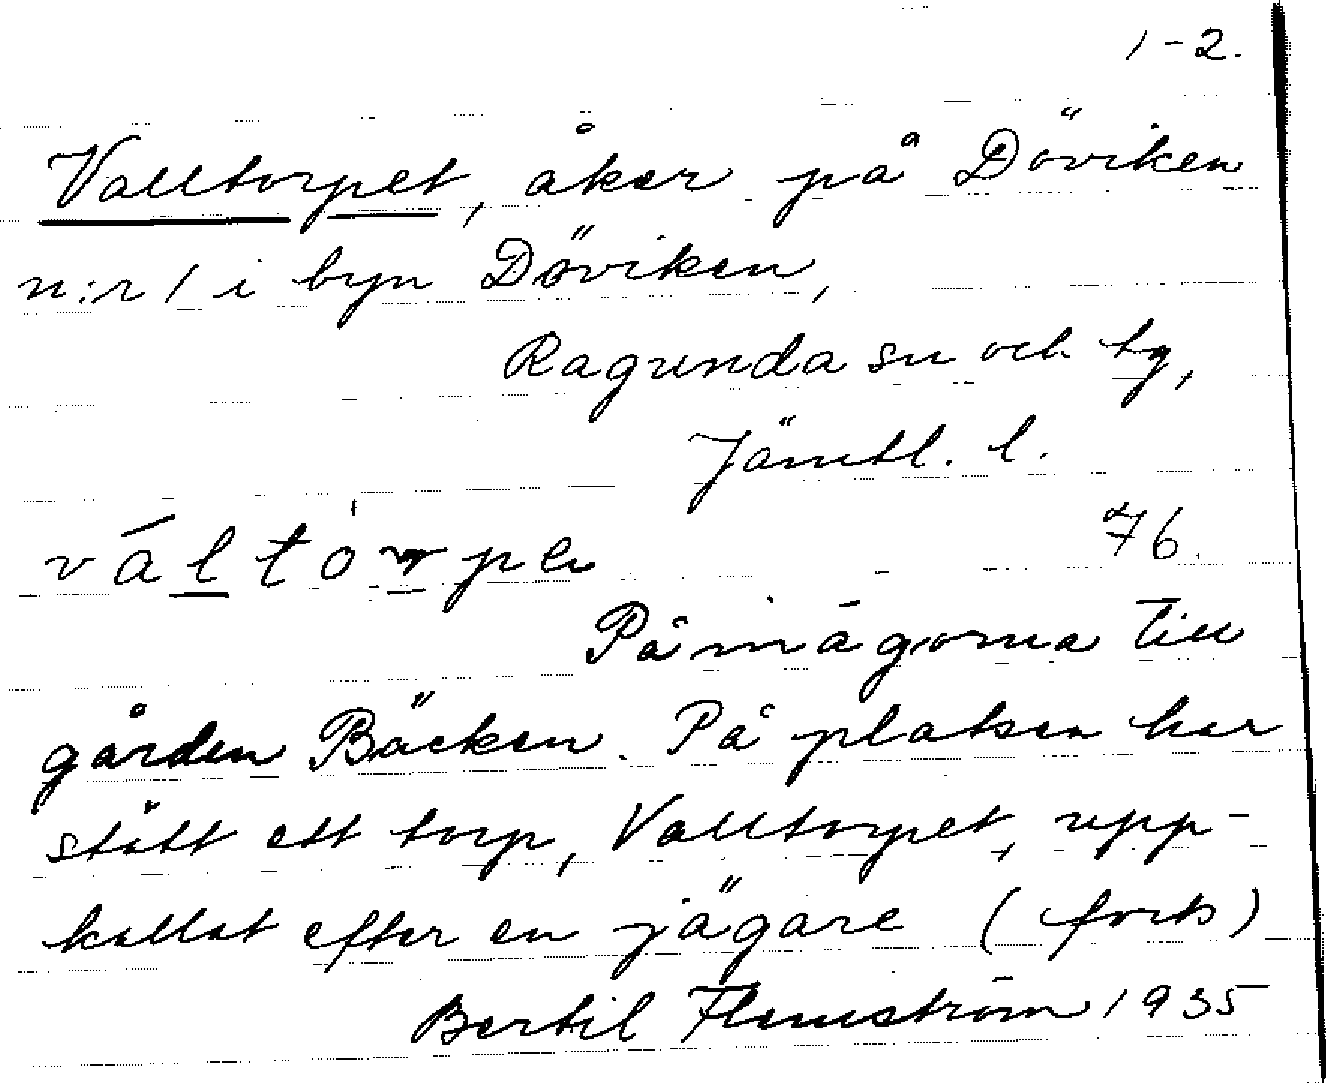 1-2.
Valltorpet, åker på Döviken
n:r 1 i byn Döviken,
Ragunda sn och tg,
Jämtl. l.
váltórpe 76.
På inägorna till
gården Bäcken. På platsen har
stått ett torp, Valltorpet, upp-
kallat efter en jägare (forts)
Bertil Flemström 1935